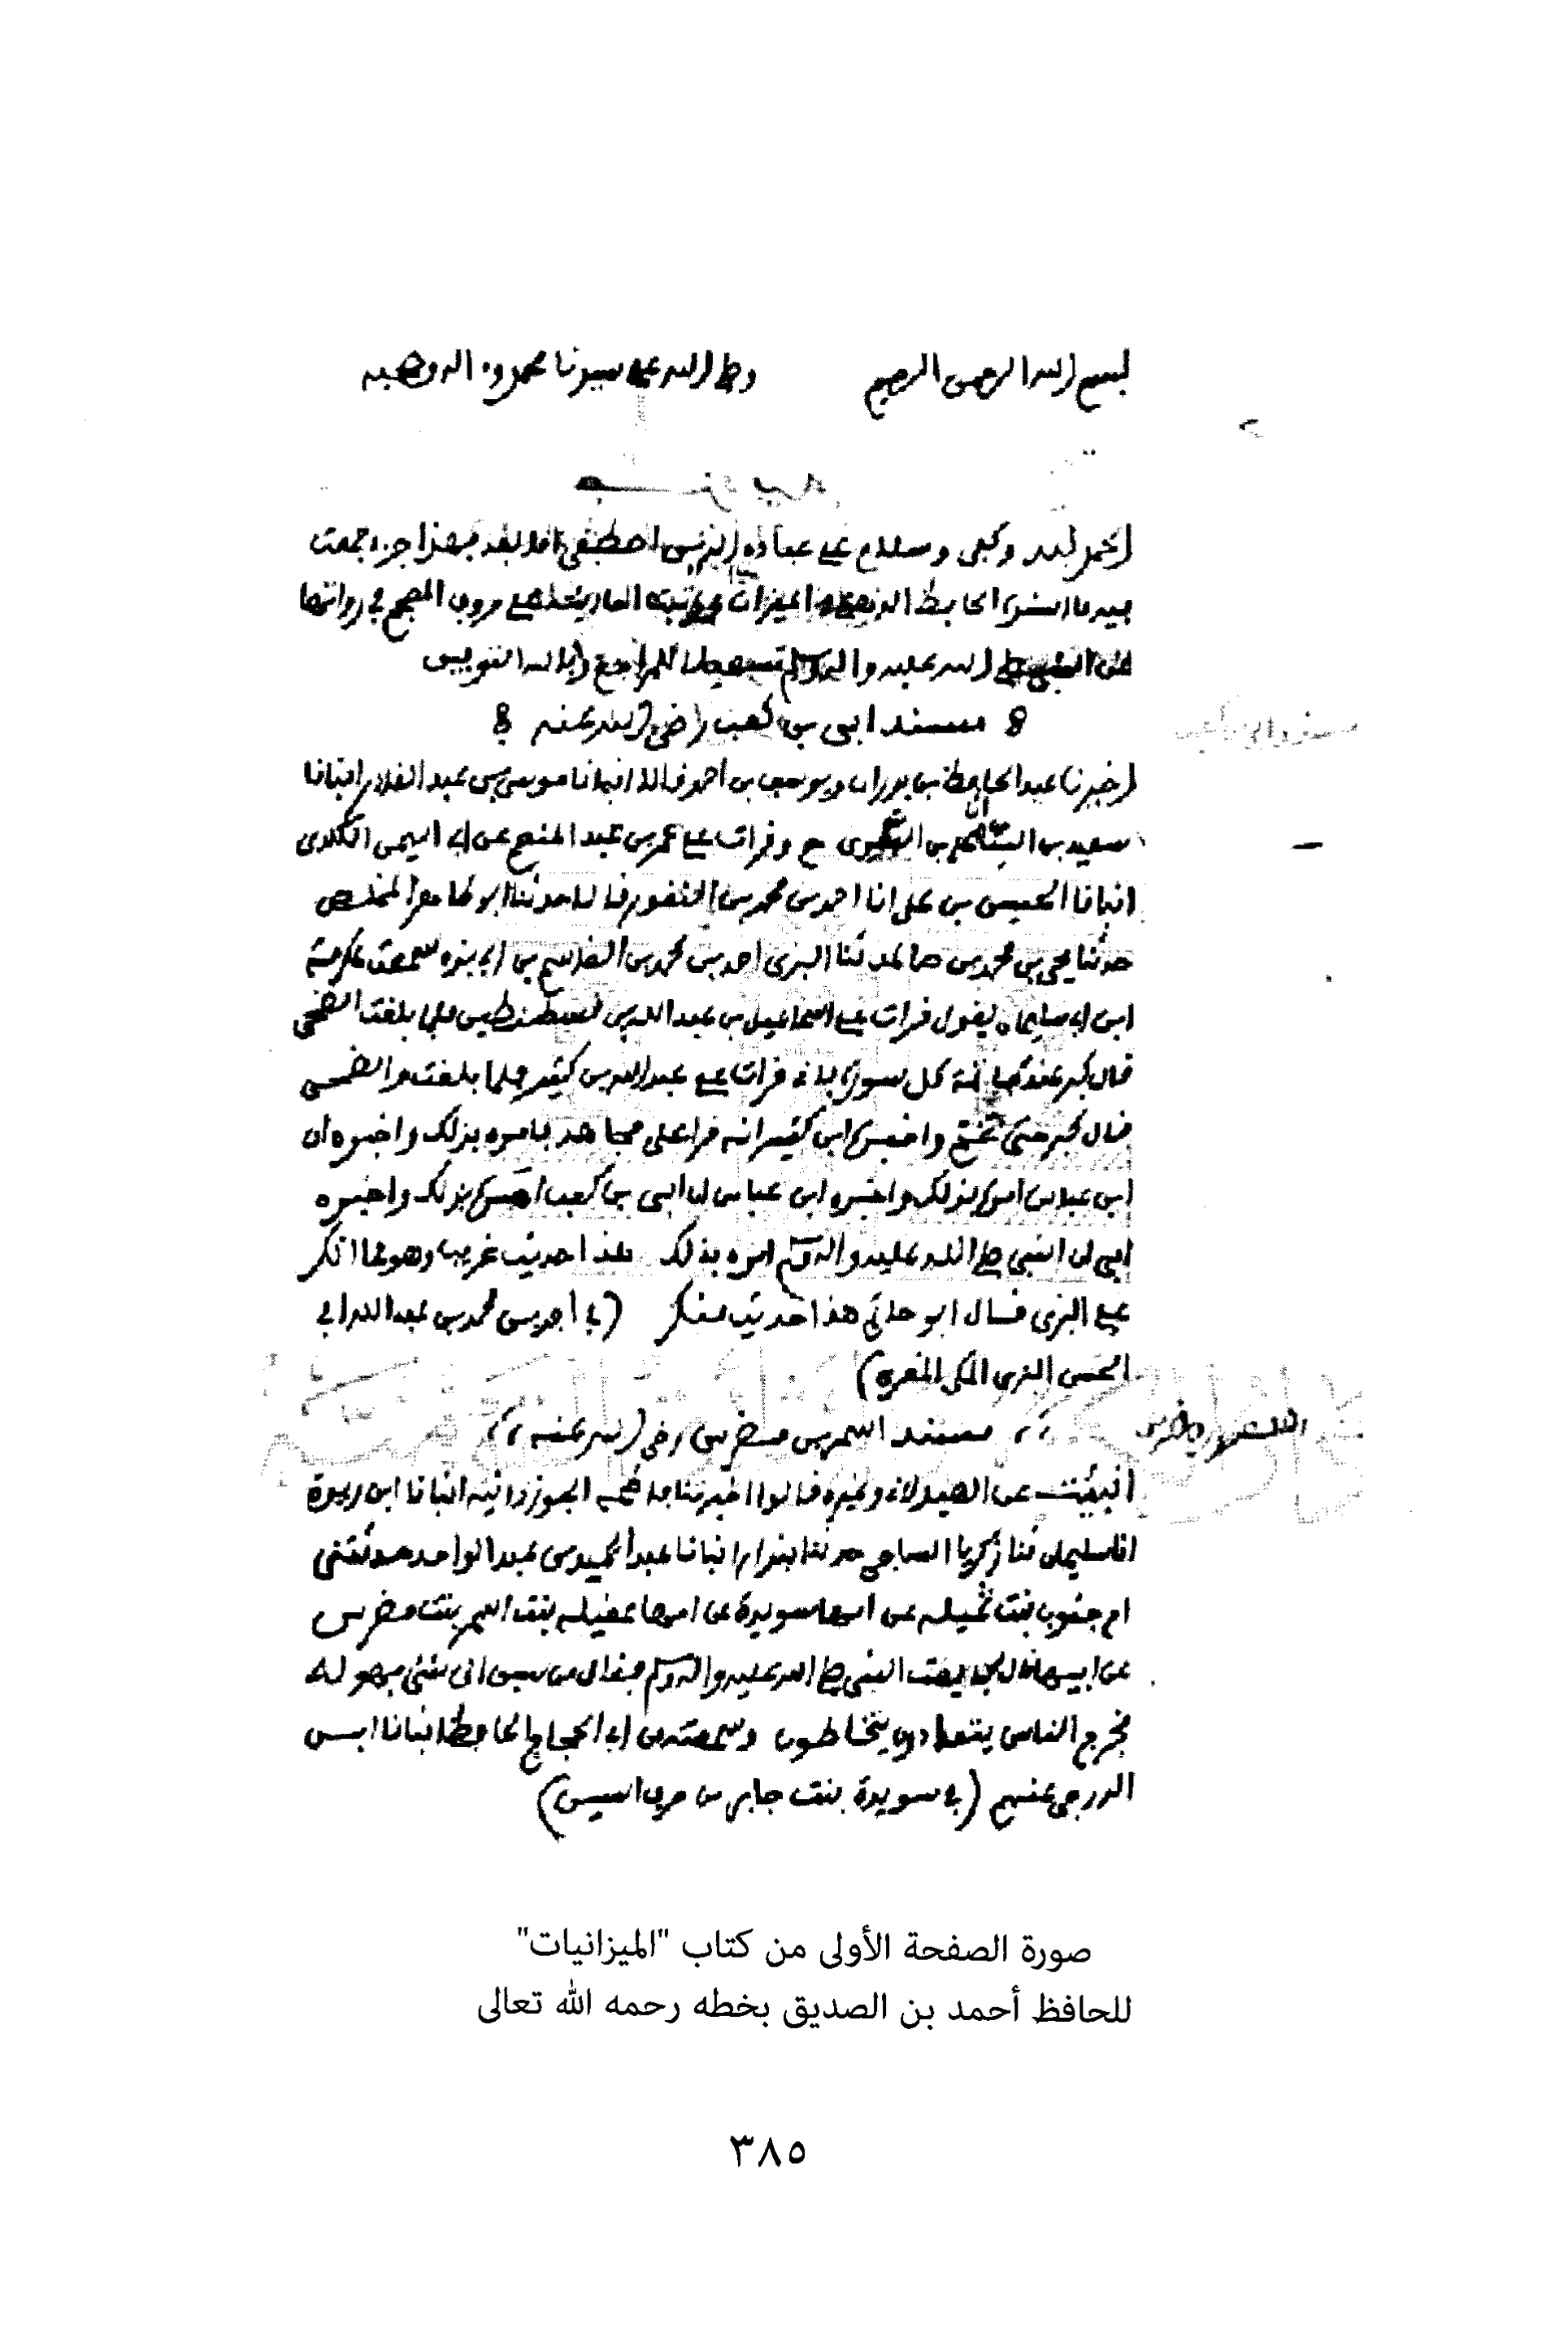 بسم الله الرحمن الرحيم وصلى الله على سيدنا محمد وآله وصحبه
الحمد لله وكفى وسلام على عباده الذين اصطفى اما بعد فهذا جزء جمعت
فيه ما اسنده الحافظ الذهبي في الميزان من الاحاديث على حروف المعجم في رواتها
عن النبي صلى الله عليه وآله وسلم تسهيلا للمراجع وبالله التوفيق
مسند ابي بن كعب رضي الله عنه
اخبرنا عبد الحافظ بن بدران ويوسف بن احمد قالا انبانا موسى بن عبد القادر انبانا
سعيد بن البنا انا بن البسري ح وقرات على عمر بن عبد المنعم عن ابي اليمن الكندي
انبانا الحسين بن علي انا احمد بن محمد بن النقور قالا حدثنا ابو طاهر المخلص
حدثنا يحيى بن محمد بن صاعد ثنا البزي احمد بن محمد بن القاسم بن ابي بزه سمعت عكرمة
ابن ابي سليمان يقول قرات على اسماعيل بن عبد الله بن قسطنطين فلما بلغت الضحى
قال كبر عند خاتمة كل سورة فاني قرات على عبد الله بن كثير فلما بلغت والضحى
قال كبر حتى تختم واخبرني ابن كثير انه قرا على مجاهد فامره بذلك واخبره ان
ابن عباس امره بذلك واخبره ابن عباس ان ابي بن كعب امره بذلك واخبره
ابي ان النبي صلى الله عليه وآله وسلم امره بذلك هذا حديث غريب وهو مما انكر
على البزي قال ابو حاتم هذا حديث منكر (في احمد بن محمد بن عبد الله ابي
الحسن البزي المكي المقري)
مسند اسمر بن مضرس رضي الله عنه
انبئت عن الصيدلاني وغيره قالوا اخبرتنا فاطمة الجوزدانية انبانا ابن ريذة
انا سليمان ثنا زكريا الساجي حدثنا بندار انبانا عبد الحميد بن عبد الواحد حدثتني
ام جنوب بنت نميله عن امها سويدة عن امها عقيله بنت اسمر بنت مضرس
عن ابيها قال بايعت النبي صلى الله عليه وآله وسلم فقال من سبق الى شيء فهو له
فخرج الناس يتعادون يتخاطون وسمعته من ابي الحجاج الحافظ انبانا ابن
الدرجي عنهم (في سويدة بنت جابر من حرف السين)
صورة الصفحة الأولى من كتاب "الميزانيات"
للحافظ أحمد بن الصديق بخطه رحمه الله تعالى
٣٨٥